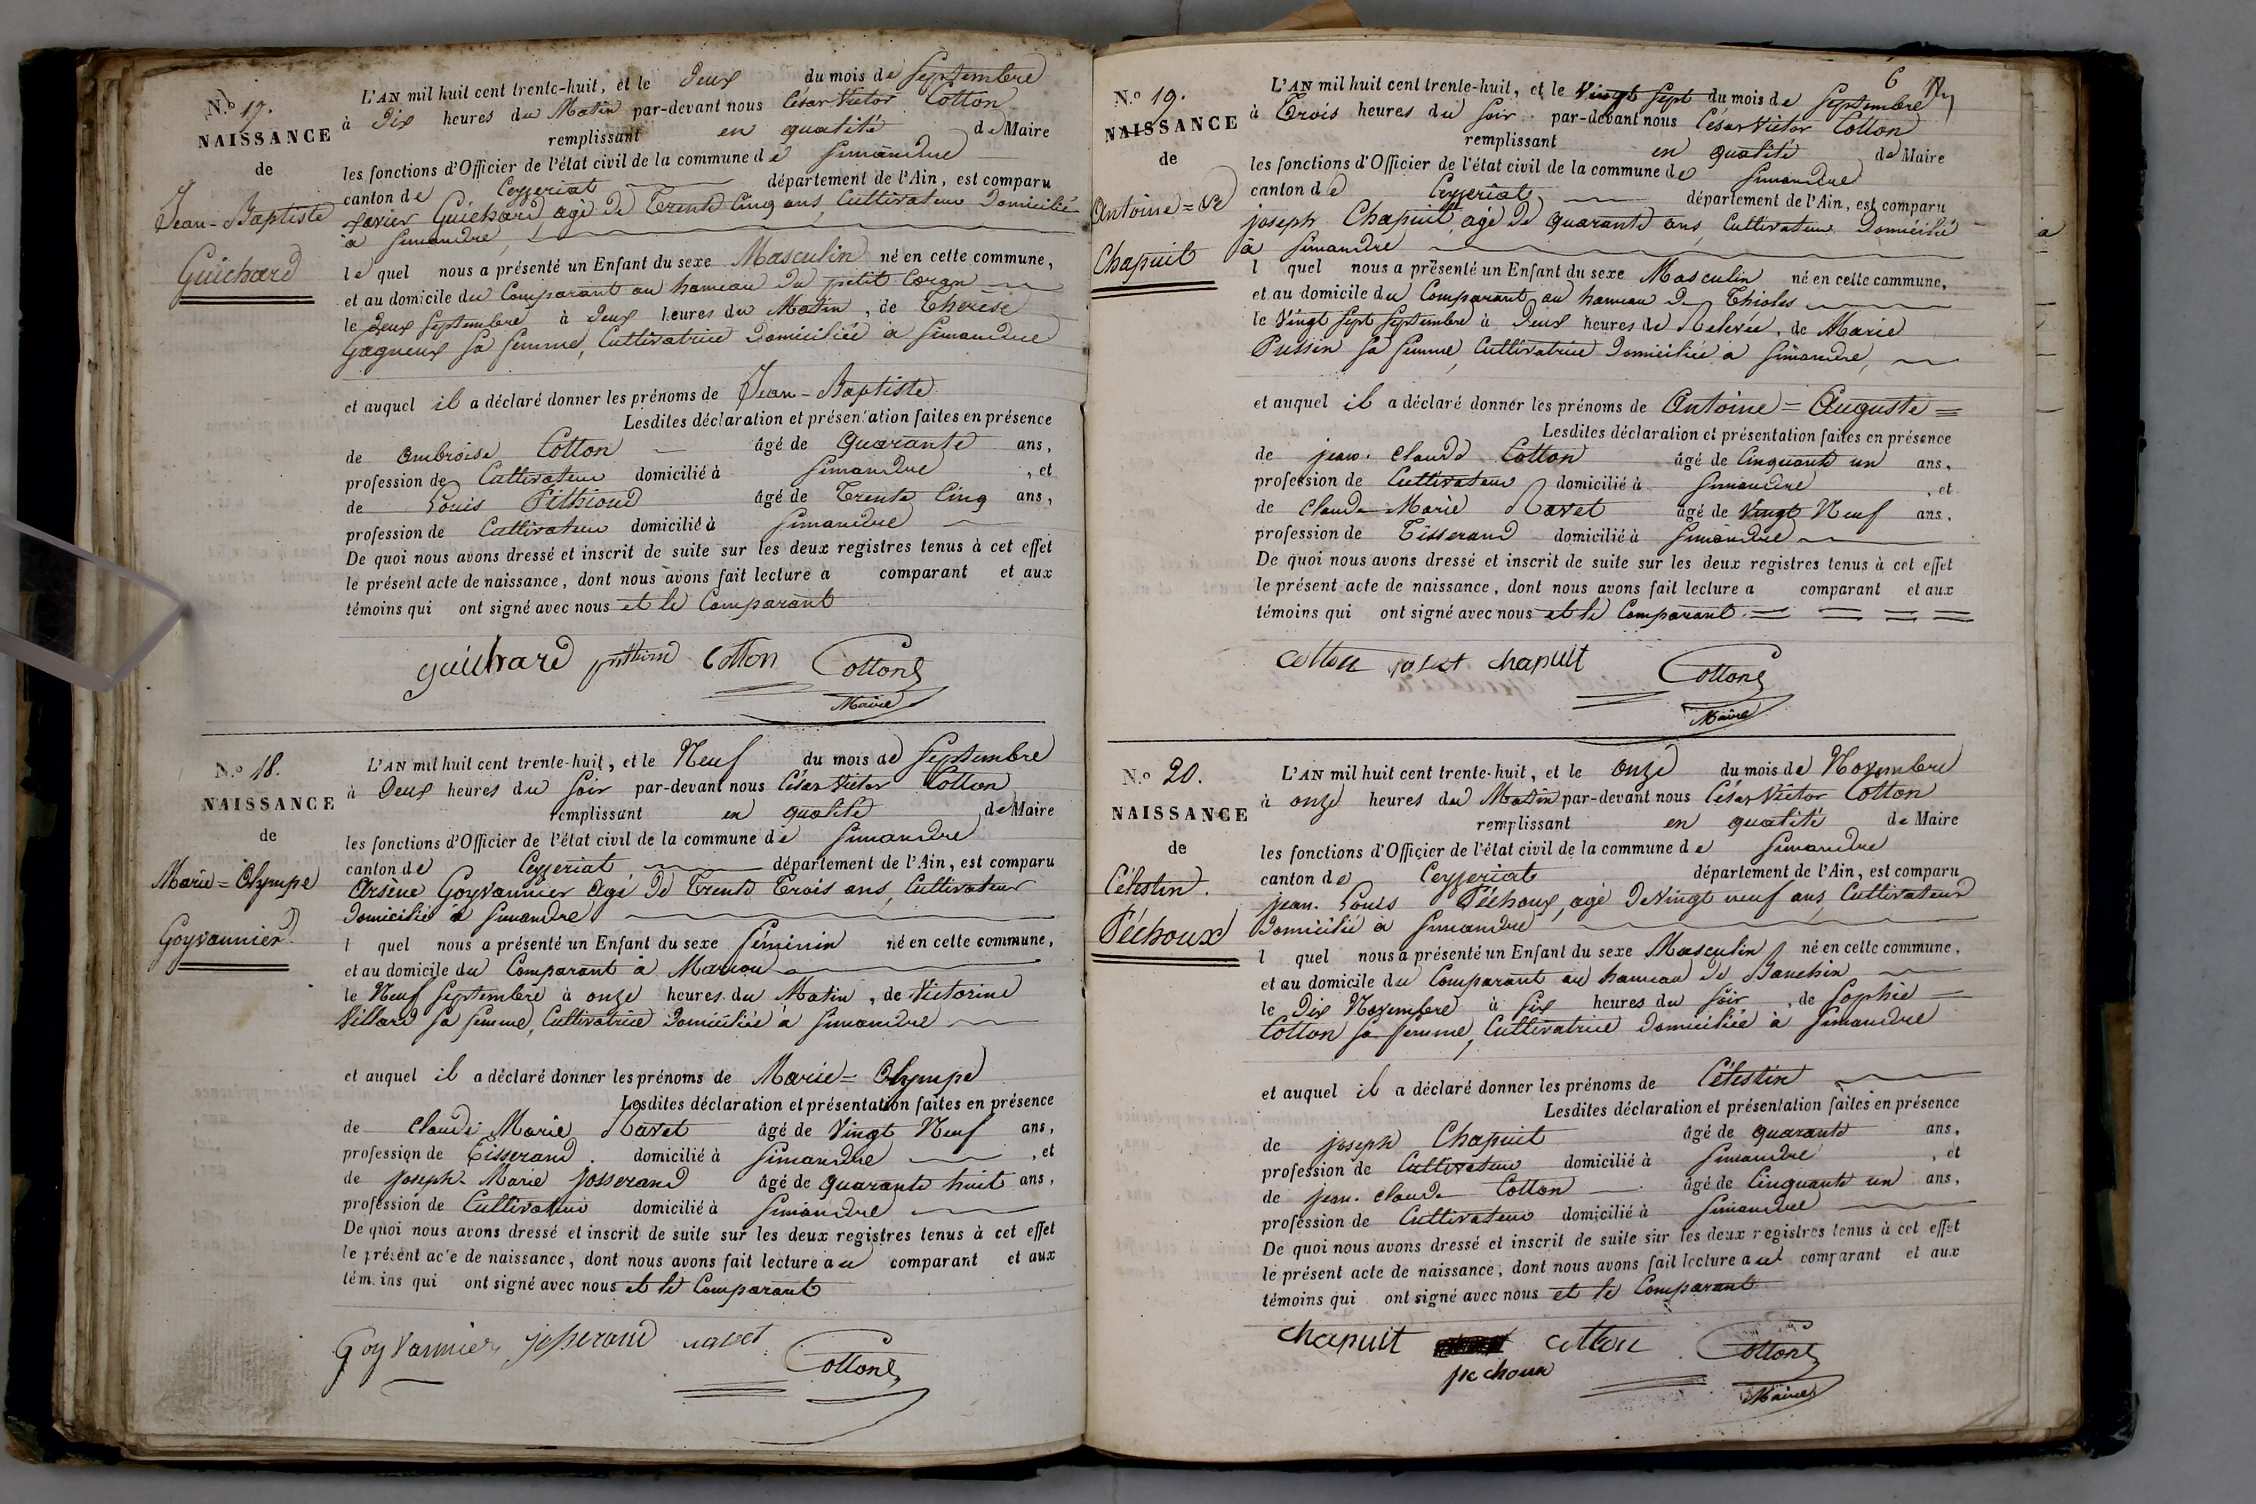 N.º 17.
NAISSANCE
de
Jean-Baptiste
Guichard
L'AN mil huit cent trente-huit, et le deux du mois de Septembre
à dix heures du Matin par-devant nous César Victor Cotton
remplissant en qualité de Maire
les fonctions d'Officier de l'état civil de la commune de Simandre
canton de Ceyzeriat département de l'Ain, est comparu
xavier Guichard, agé de Trente Cinq ans, Cultivateur Domicilié
à Simandre,
le quel nous a présenté un Enfant du sexe Masculin né en cette commune,
et au domicile du Comparant au hameau du petit Coran
le deux Septembre à deux heures du Matin, de Therese
Gagneux sa femme, Cultivatrice Domiciliée à Simandre
et auquel il a déclaré donner les prénoms de Jean-Baptiste
Lesdites déclaration et présentation faites en présence
de ambroise Cotton âgé de quarante ans,
profession de Cultivateur domicilié à Simandre, et
de Louis Pithioud âgé de Trente Cinq ans,
profession de Cultivateur domicilié à Simandre
De quoi nous avons dressé et inscrit de suite sur les deux registres tenus à cet effet
le présent acte de naissance, dont nous avons fait lecture a comparant et aux
témoins qui ont signé avec nous et le Comparant
guichard pithioud Cotton Cotton
Maire
N.º 18.
NAISSANCE
de
Marie=Olympe
Goyvannier
L'AN mil huit cent trente-huit, et le Neuf du mois de Septembre
à Deux heures du Soir par-devant nous César Victor Cotton
remplissant en qualité de Maire
les fonctions d'Officier de l'état civil de la commune de Simandre
canton de Ceyzeriat département de l'Ain, est comparu
Arsène Goyvannier agé de Trente Trois ans, Cultivateur
Domicilié à Simandre
l quel nous a présenté un Enfant du sexe féminin né en cette commune,
et au domicile du Comparant à Marcou
le Neuf Septembre à onze heures du Matin, de Victorine
Villard sa femme, Cultivatrice Domiciliée à Simandre
et auquel il a déclaré donner les prénoms de Marie=Olympe
Lesdites déclaration et présentation faites en présence
de Claude Marie Ravet âgé de Vingt Neuf ans,
profession de Tisserand. domicilié à Simandre, et
de joseph Marie josserand âgé de quarante huit ans,
profession de Cultivateur domicilié à Simandre
De quoi nous avons dressé et inscrit de suite sur les deux registres tenus à cet effet
le présent acte de naissance, dont nous avons fait lecture au comparant et aux
témoins qui ont signé avec nous et le Comparant
Goyvannier josserand ravet Cotton
6
N.º 19.
NAISSANCE
de
Antoine=te
Chapuit
L'AN mil huit cent trente-huit, et le Vingt Sept du mois de Septembre
à Trois heures du Soir par-devant nous César Victor Cotton
remplissant en qualité de Maire
les fonctions d'Officier de l'état civil de la commune de Simandre
canton de Ceyzeriat département de l'Ain, est comparu
joseph Chapuit, agé de quarante ans, Cultivateur Domicilié
à Simandre
l quel nous a présenté un Enfant du sexe Masculin né en cette commune,
et au domicile du Comparant au hameau de Thioles
le Vingt Sept Septembre à Deux heures de Relevée, de Marie
Pussin sa femme, Cultivatrice Domiciliée à Simandre,
et auquel il a déclaré donner les prénoms de Antoine=Auguste=
Lesdites déclaration et présentation faites en présence
de jean. claude Cotton âgé de Cinquante un ans,
profession de Cultivateur domicilié à Simandre, et
de Claude Marie Ravet âgé de Vingt Neuf ans,
profession de Tisserand domicilié à Simandre
De quoi nous avons dressé et inscrit de suite sur les deux registres tenus à cet effet
le présent acte de naissance, dont nous avons fait lecture a comparant et aux
témoins qui ont signé avec nous et le Comparant.
cotton ravet chapuit Cotton
Maire
N.º 20.
NAISSANCE
de
Célestin.
Péchoux
L'AN mil huit cent trente-huit, et le onze du mois de Novembre
à onze heures du Matin par-devant nous César Victor Cotton
remplissant en qualité de Maire
les fonctions d'Officier de l'état civil de la commune de Simandre
canton de Ceyzeriat département de l'Ain, est comparu
jean. Louis Péchoux, agé de Vingt neuf ans, Cultivateur
Domicilié à Simandre
l quel nous a présenté un Enfant du sexe Masculin né en cette commune,
et au domicile du Comparant au hameau de Banchin
le Dix Novembre à Six heures du Soir, de Sophie
Cotton sa femme, Cultivatrice Domiciliée à Simandre
et auquel il a déclaré donner les prénoms de Célestin
Lesdites déclaration et présentation faites en présence
de joseph Chapuit âgé de quarante ans,
profession de Cultivateur domicilié à Simandre, et
de jean. claude Cotton âgé de Cinquante un ans,
profession de Cultivateur domicilié à Simandre
De quoi nous avons dressé et inscrit de suite sur les deux registres tenus à cet effet
le présent acte de naissance, dont nous avons fait lecture au comparant et aux
témoins qui ont signé avec nous et le Comparant
chapuit cotton Cotton
pechoux
Maire